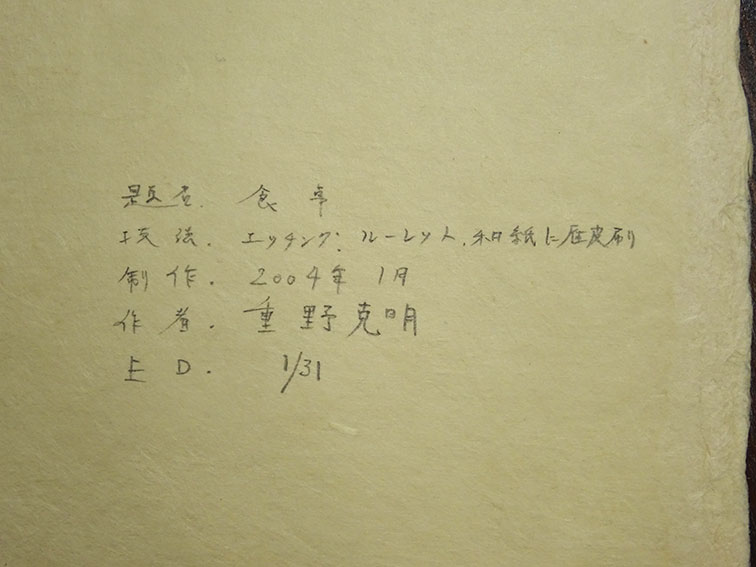 題名. 食事
技法. エッチング. ルーレット. 和紙に雁皮刷り
制作. 2004年 1月
作者. 重野克明
ED. 1/31